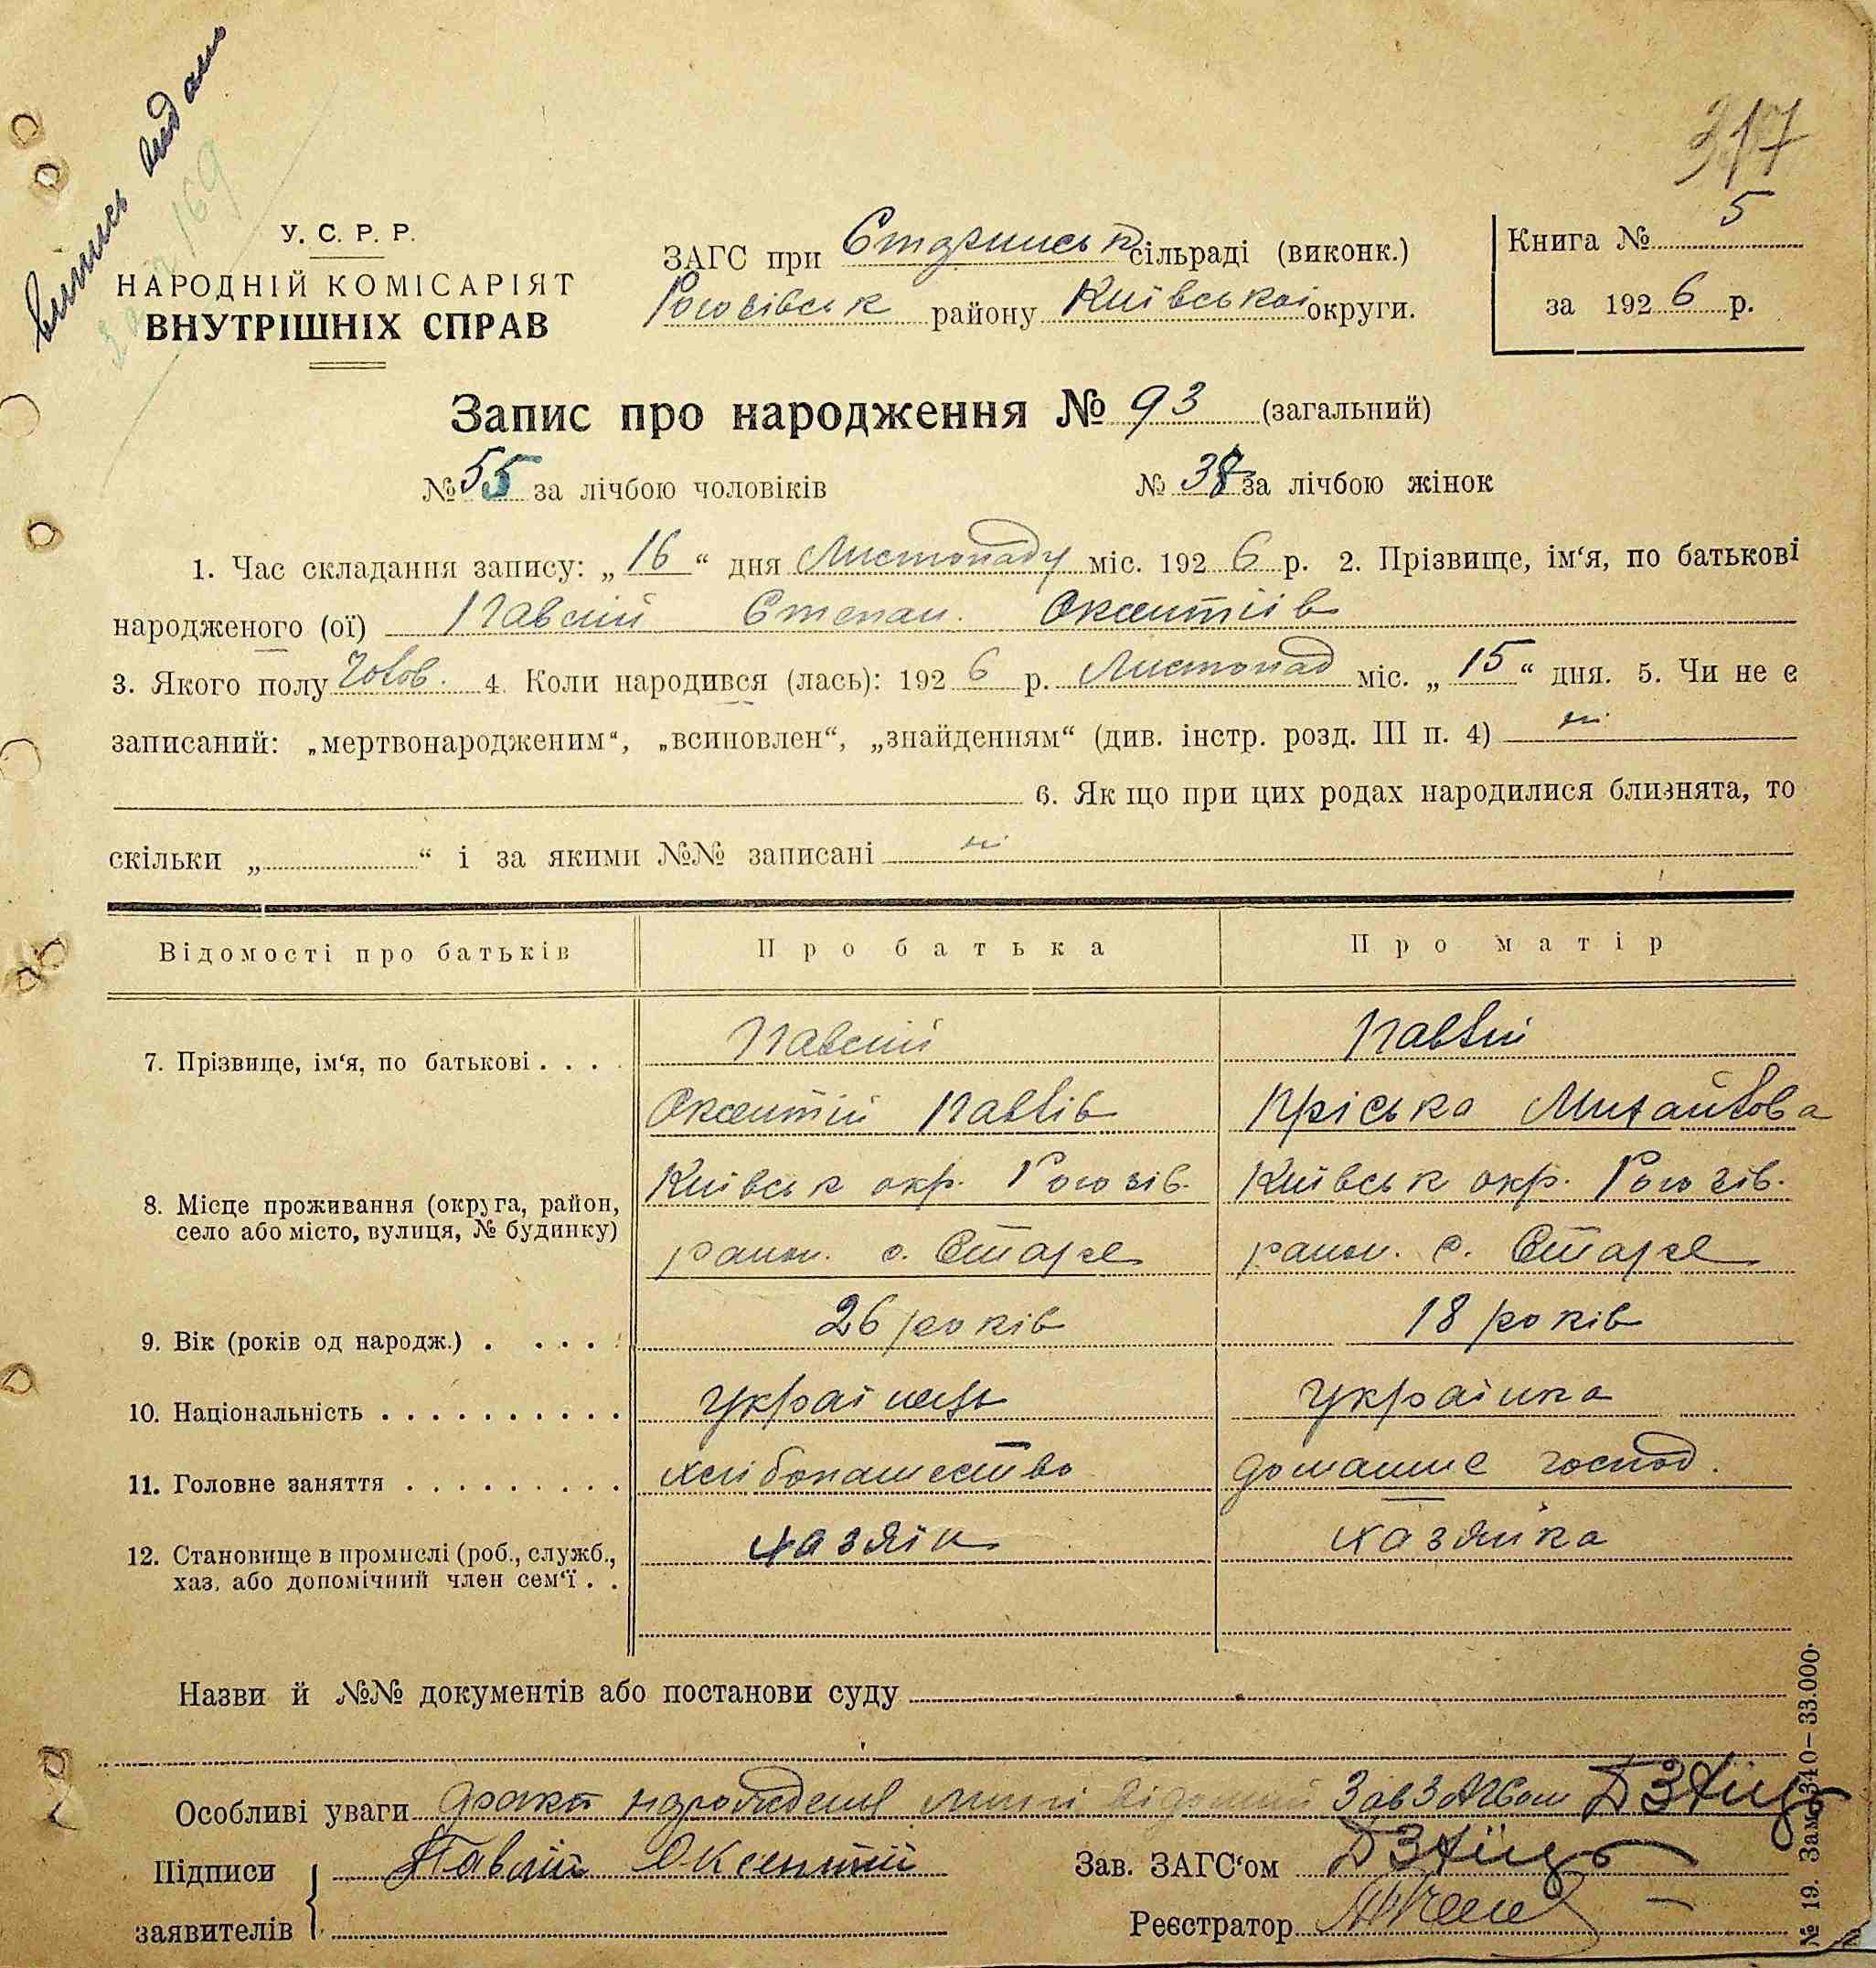 випись видано
169
317
У. С. Р. Р.
НАРОДНІЙ КОМІСАРІЯТ
ВНУТРІШНІХ СПРАВ
ЗАГС при Старинськ сільраді (виконк.)
Рогозівськ району Київської округи.
Книга № 5
за 1926 р.
Запис про народження № 93 (загальний)
№ 55 за лічбою чоловіків
№ 38 за лічбою жінок
1. Час складання запису: „16“ дня Листопаду міс. 1926 р. 2. Прізвище, ім‘я, по батькові
народженого (ої) Павлій Степан. Оксентіїв
3. Якого полу Чолов. 4. Коли народився (лась): 1926 р. Листопад міс. „15“ дня. 5. Чи не є
записаний: „мертвонародженим“, „всиновлен“, „знайденням“ (див. інстр. розд. III п. 4) ні
6. Як що при цих родах народилися близнята, то
скільки „ “ і за якими №№ записані ні
Відомості про батьків Про батька Про матір
7. Прізвище, ім‘я, по батькові . . . . Павлій Павлій
Оксентій Павлів Пріська Михайлова
8. Місце проживання (округа, район, Київськ окр. Рогозів. Київськ окр. Рогозів.
село або місто, вулиця, № будинку) район. с. Старе район. с. Старе
9. Вік (років од народж.) . . . . . 26 років 18 років
10. Національність . . . . . . . . . . Українець Українка
11. Головне заняття . . . . . . . . . хліборобство домашнє господ.
12. Становище в промислі (роб., служб., хазяїн хазяйка
хаз. або допомічний член сем‘ї . .
Назви й №№ документів або постанови суду
Особливі уваги факт народження мині відомий Зав ЗАГСом
Підписи Павлій Оксентій
заявителів
Зав. ЗАГС‘ом
Реєстратор
№ 19. Зам. 340—33.000.